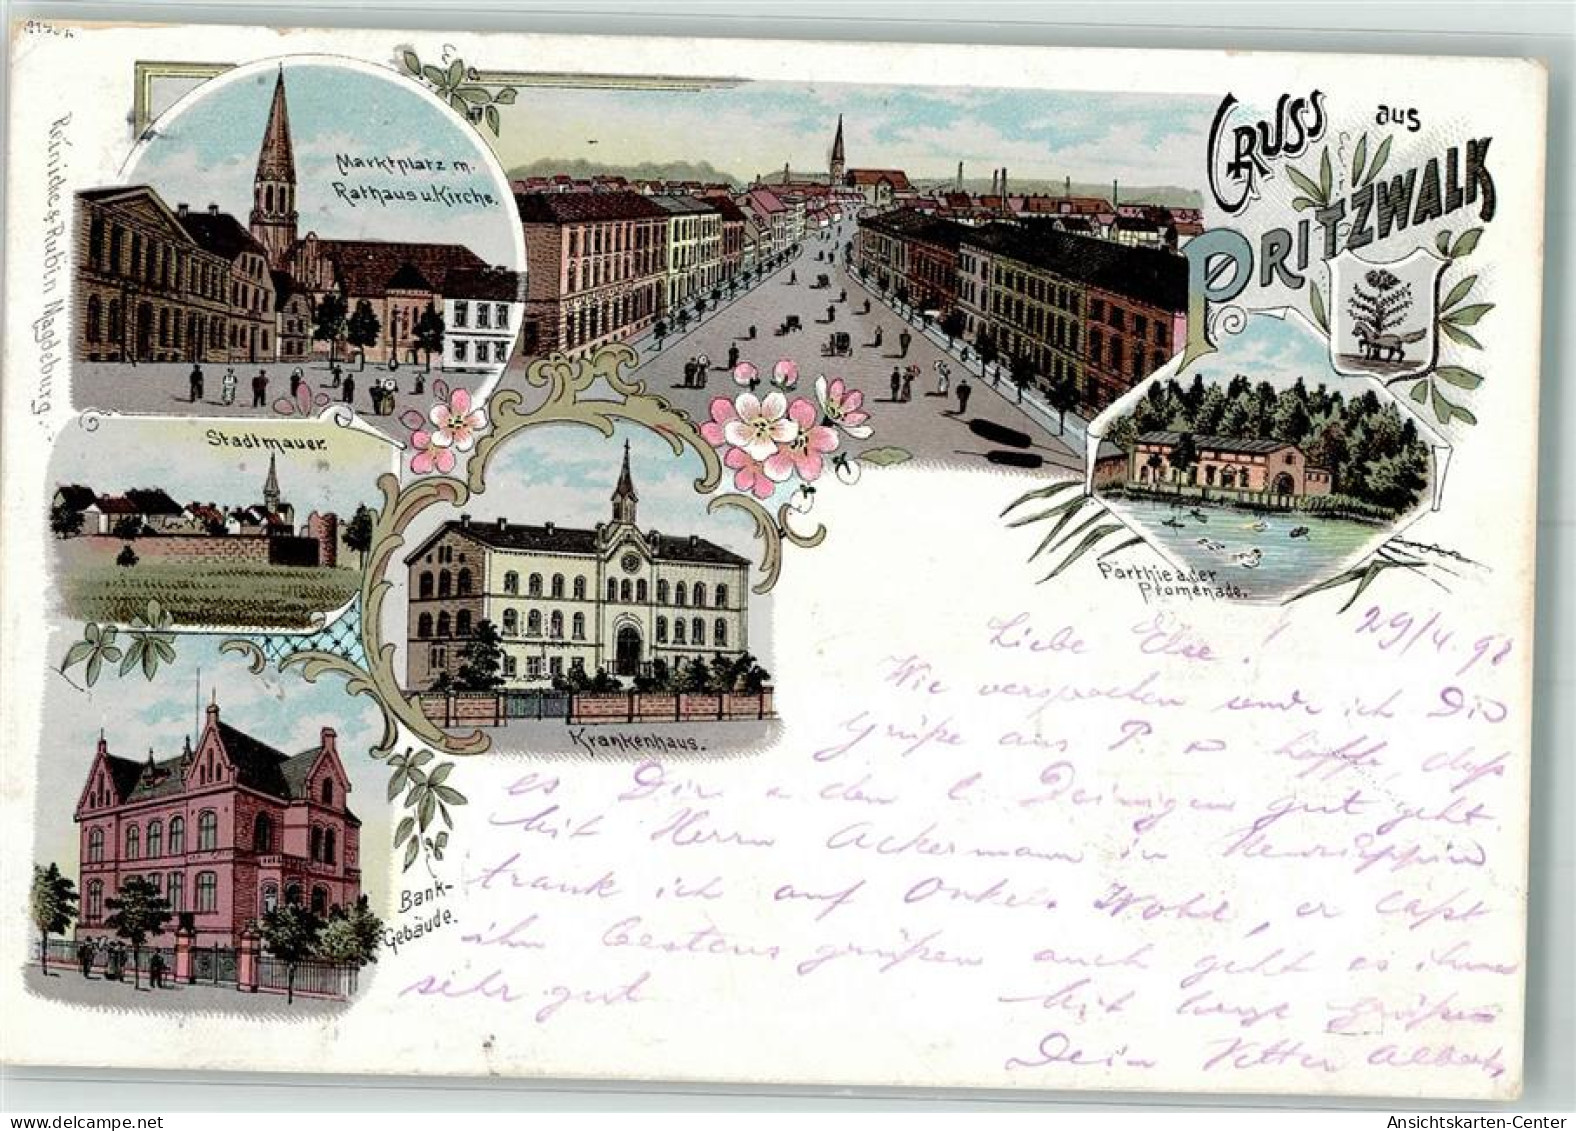 Reinicke & Rubin, Magdeburg.
Marktplatz m.
Rathaus u. Kirche.
GRUSS aus
PRITZWALK
Stadtmauer.
Krankenhaus.
Parthie a. der
Promenade.
Bank-
Gebäude.
29/4. 98
Liebe Else!
Wie versprochen sende ich Dir
Grüße aus P. hoffe, daß
es Dir den Deinigen gut geht.
Mit Herrn Ackermann in
trank ich auf Onkels Wohl, er läßt
ihn bestens grüßen auch geht es ihm
sehr gut
Mit Grüßen
Dein Vetter Albert
Ansichtskarten-Center